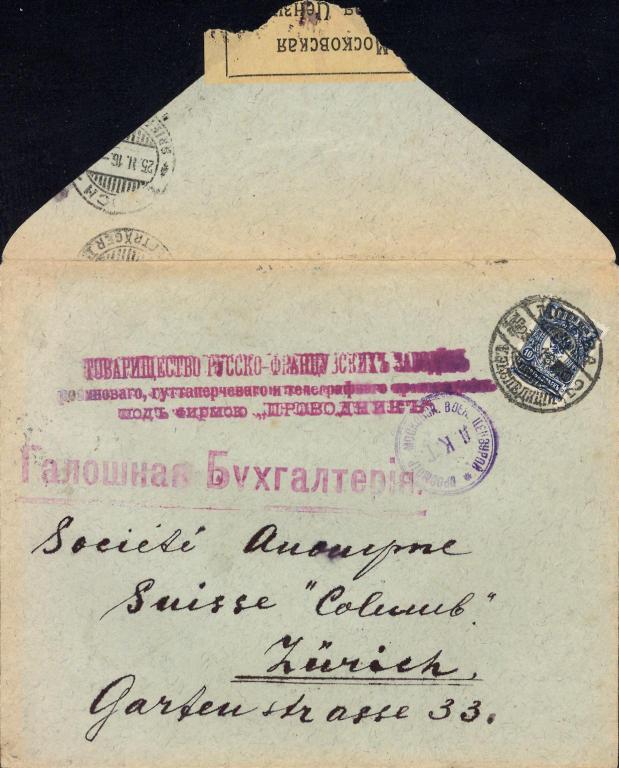 Московская
25. II. 16.
МОСКВА
ТОВАРИЩЕСТВО РУССКО-ФРАНЦУЗСКИХЪ ЗАВОДОВЪ
резиноваго, гуттаперчеваго и телеграфнаго
подъ фирмою „ПРОВОДНИКЪ"
МОСКОВСК. ВОЕН. ЦЕНЗУРОЙ
Д. К. Т.
Галошная Бухгалтерія.
Société Anonyme
Suisse "Columb"
Zürich,
Gartenstrasse 33.